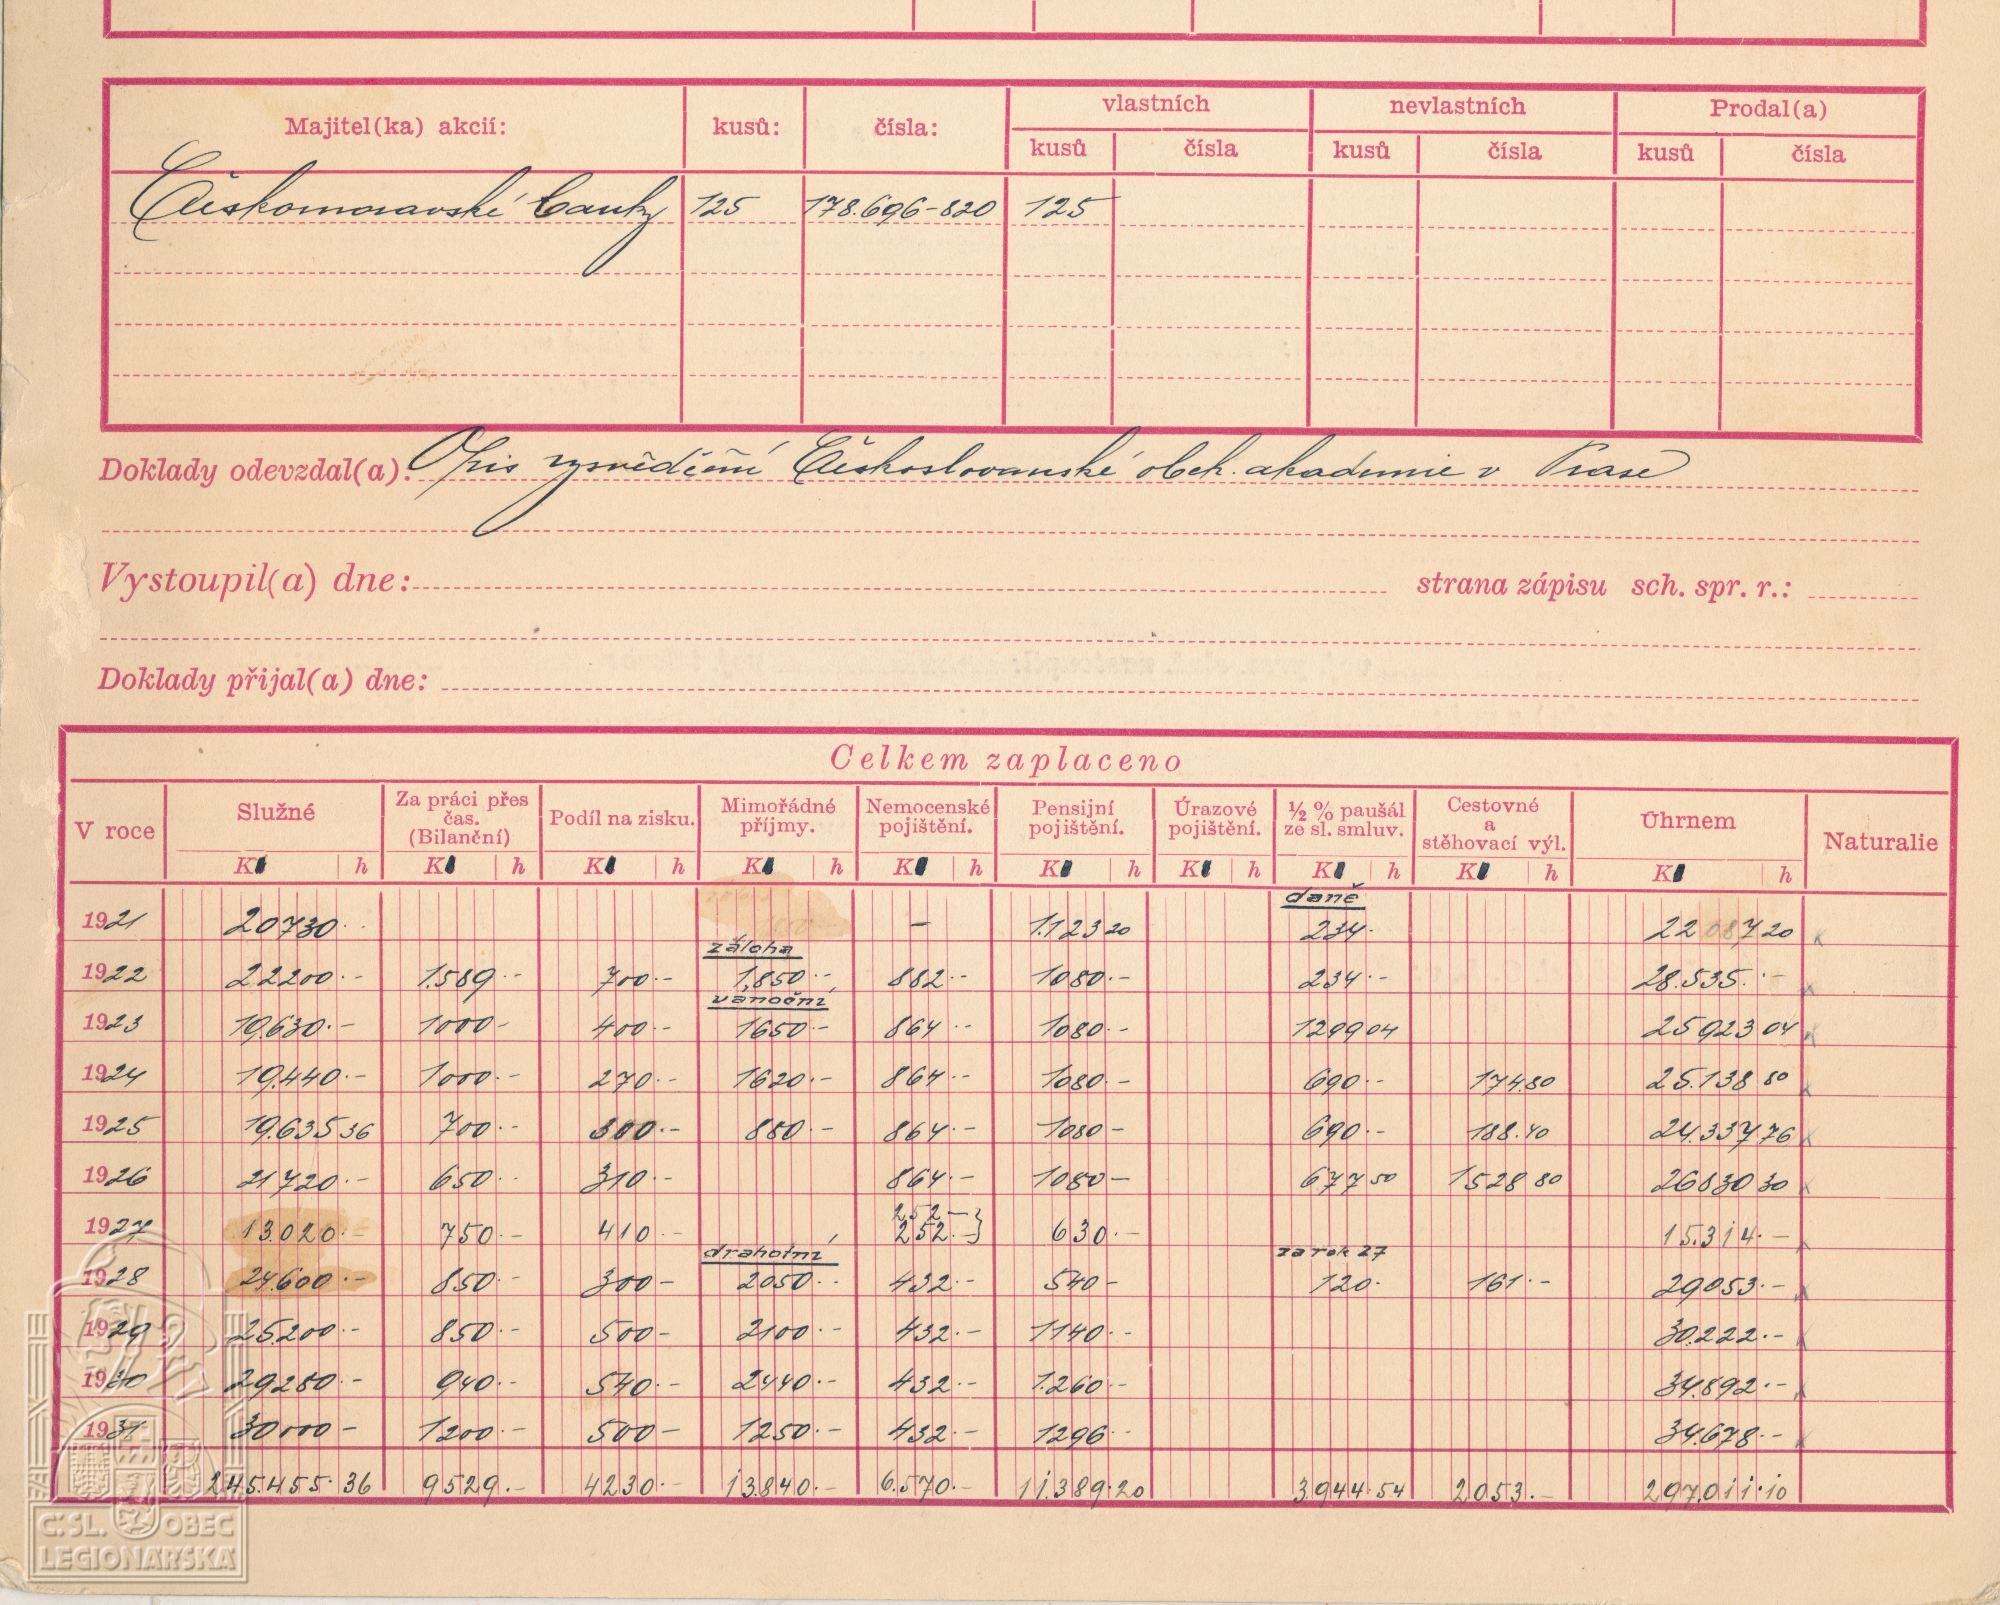 Majitel(ka) akcií: kusů: čísla: vlastních nevlastních Prodal(a)
kusů čísla kusů čísla kusů čísla
Českomoravské banky 125 178.696-820 125
Doklady odevzdal(a): Opis vysvědčení Českoslovanské obch. akademie v Praze
Vystoupil(a) dne: strana zápisu sch. spr. r.:
Doklady přijal(a) dne:
Celkem zaplaceno
V roce Služné Za práci přes čas. (Bilanční) Podíl na zisku. Mimořádné příjmy. Nemocenské pojištění. Pensijní pojištění. Úrazové pojištění. ½ % paušál ze sl. smluv. Cestovné a stěhovací výl. Úhrnem Naturalie
K h K h K h K h K h K h K h K h K h K h
daně
1921 20730 - 1.123 20 234.- 22087 20
záloha
1922 22200.- 1.589.- 700.- 1.850.- 882.- 1080.- 234.- 28.535.-
vánoční
1923 19.630.- 1000- 400.- 1650.- 864.- 1080.- 1299 04 25923 04
1924 19.440.- 1000.- 270.- 1620.- 864.- 1080.- 690.- 174.80 25.138 80
1925 19.635 36 700.- 300.- 880.- 864.- 1080- 690.- 188.40 24.337 76
1926 21720.- 650.- 310.- 864.- 1080- 677 50 1528 80 26830 30
252.-
1927 13.020.- 750.- 410.- 252.-} 630.- 15.314.-
drahotní za rok 27
1928 24.600.- 850.- 300- 2050.- 432.- 540- 120.- 161.- 29053.-
1929 25.200.- 850.- 500- 2100.- 432.- 1140.- 30.222.-
1930 29280.- 940.- 540.- 2440.- 432.- 1.260.- 34.892.-
1931 30000- 1200.- 500- 1250.- 432.- 1296.- 34.678.-
245.455.36 9529.- 4230.- 13.840.- 6.570.- 11.389.20 3.944.54 2053.- 297.011.10
Č. SL. OBEC
LEGIONÁŘSKÁ